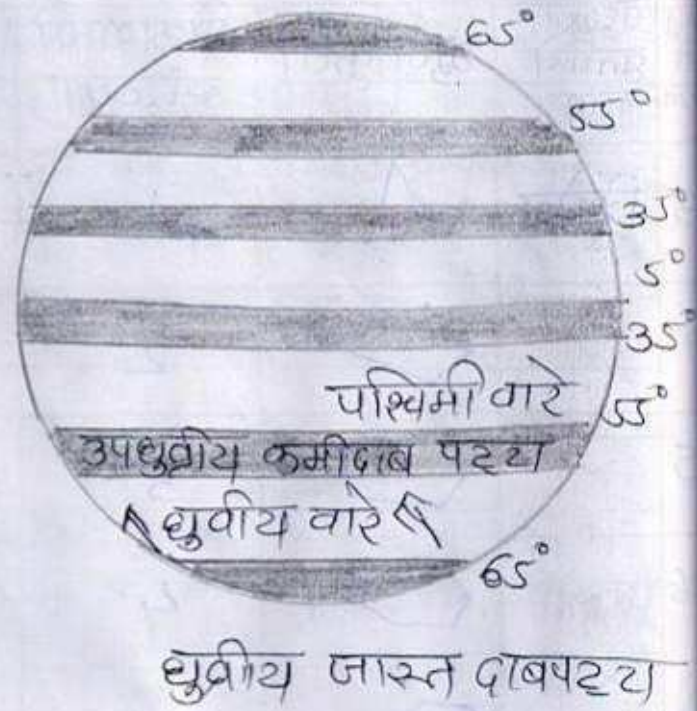 65°
55°
35°
5°
35°
पश्चिमी वारे
55°
उपध्रुवीय कमीदाब पट्टा
ध्रुवीय वारे
65°
ध्रुवीय जास्त दाबपट्टा